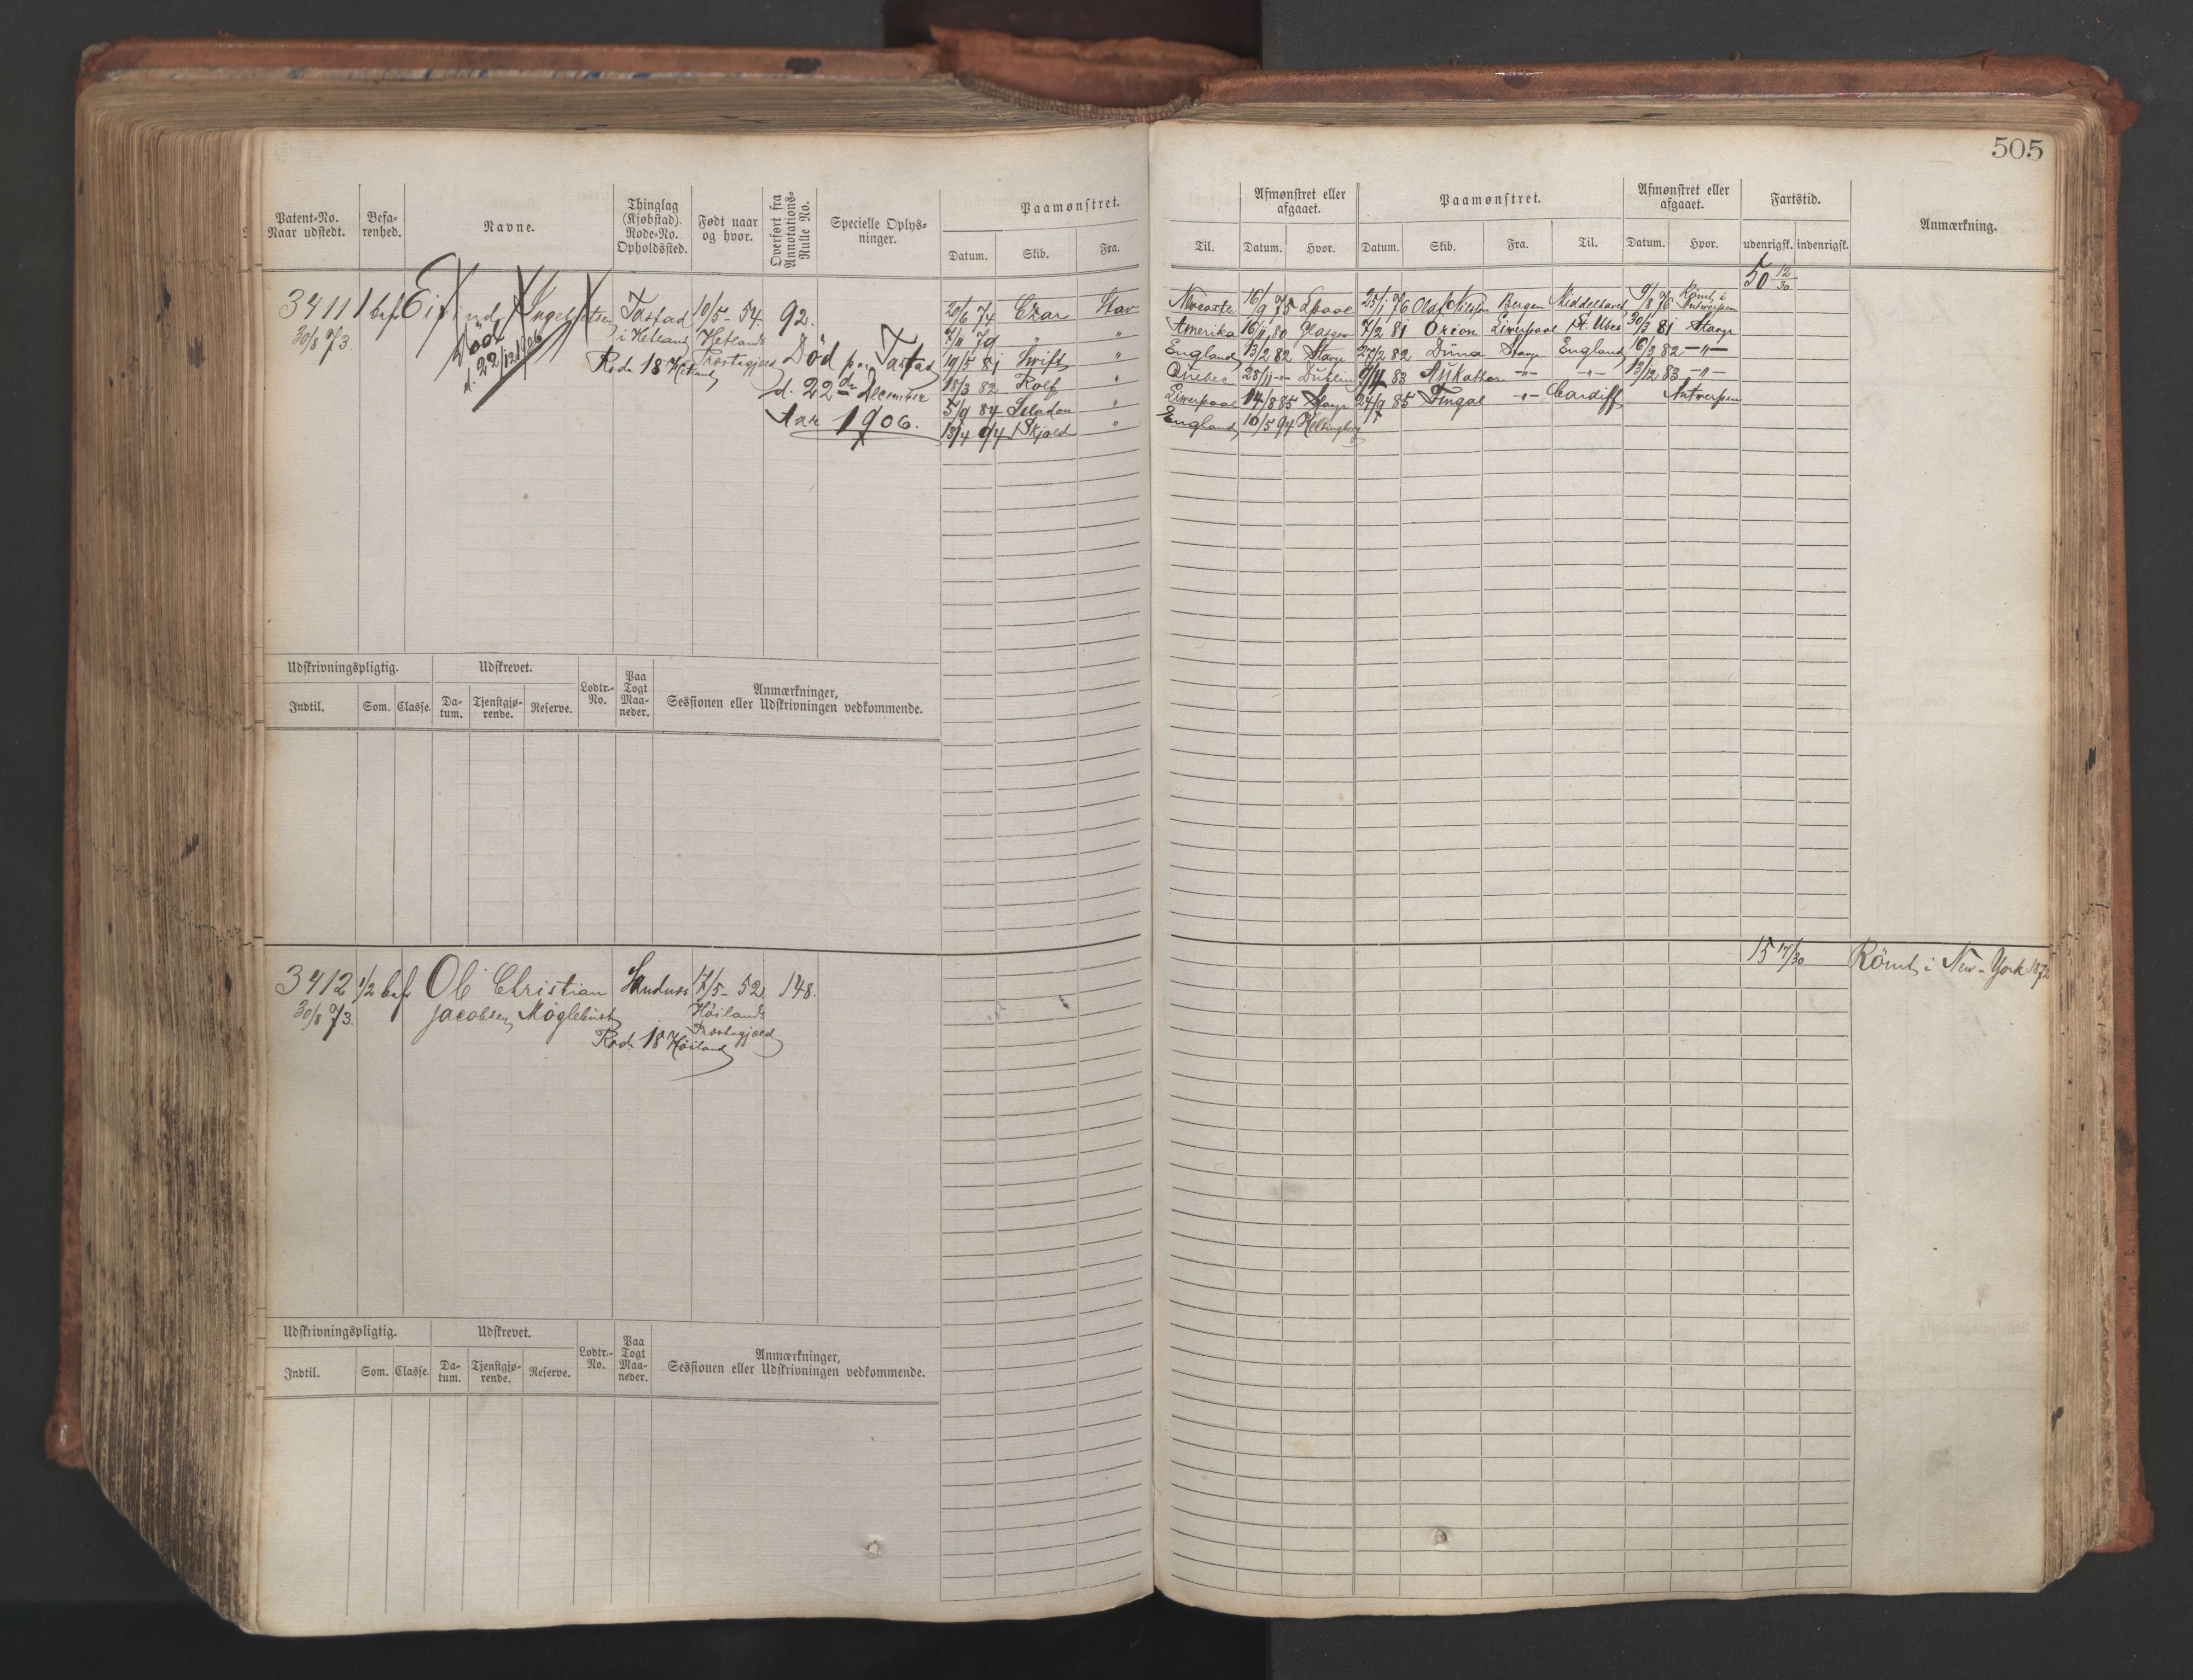 505
Patent-No. Naar udstedt.
Befa-renhed.
Navne.
Thinglag (Kjøbstad). Rode-No. Opholdssted.
Født naar og hvor.
Overført fra Annotations-Rulle No.
Specielle Oplys-ninger.
Paamønstret.
Datum. Skib. Fra. Til.
Afmønstret eller afgaaet.
Datum. Hvor.
Paamønstret.
Datum. Skib. Fra. Til.
Afmønstret eller afgaaet.
Datum. Hvor.
Fartstid.
udenrigsk. indenrigsk.
Anmærkning.
50 12/30
3411 1 bef Eivind Ingebretsen Tastad 10/5- 54. 92.
30/8 73. i Hetland Hetlands
Præstegjæld
Rode 18 Hetland
Død d. 22/12 1906
Død paa Tastad
d. 22de December
Aar 1906.
20/6 74 Czar Stav Newcastle 16/9 75 Lpool 25/1 76 Olaf Nielsen Bergen Middelhavet 9/8 76 Rømt i Antwerpen
7/11 79 " " Amerika 16/11 80 Glasgow 7/2 81 Orion Liverpool St. Ubes 30/3 81 Stavgr
19/5 81 Swift " England 13/2 82 Stavgr 27/2 82 Düna Stavgr England 16/3 82 -"-
18/3 82 Rolf " Quebec 28/11 -"- Dublin 83 -"- -"- 13/12 83 -"-
5/9 84 Seladon " Liverpool 14/8 85 Stavgr 24/9 85 Fingal -"- Cardiff Antwerpen
13/4 94 Skjold " England 10/5 94 Helsingborg
Udskrivningspligtig. Udskrevet. Lodtr.-No. Paa Togt Maa-neder. Anmærkninger, Sessionen eller Udskrivningen vedkommende.
Indtil. Som. Classe. Da-tum. Tjenstgjø-rende. Reserve.
15 17/30 Rømt i New-York 1872
3412 1/2 bef Ole Christian 17/5- 52. 148.
30/8 73. Jacobsen Høilands
Præstegjæld
Rode 18 Høiland
Udskrivningspligtig. Udskrevet. Lodtr.-No. Paa Togt Maa-neder. Anmærkninger, Sessionen eller Udskrivningen vedkommende.
Indtil. Som. Classe. Da-tum. Tjenstgjø-rende. Reserve.